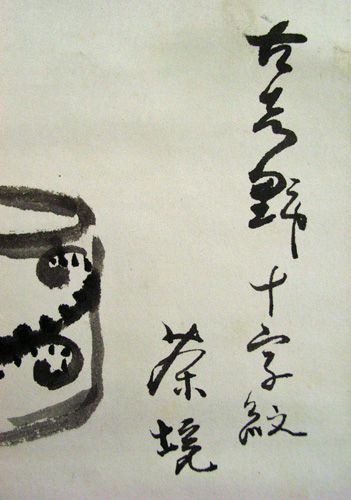 古志野十字紋
茶垸